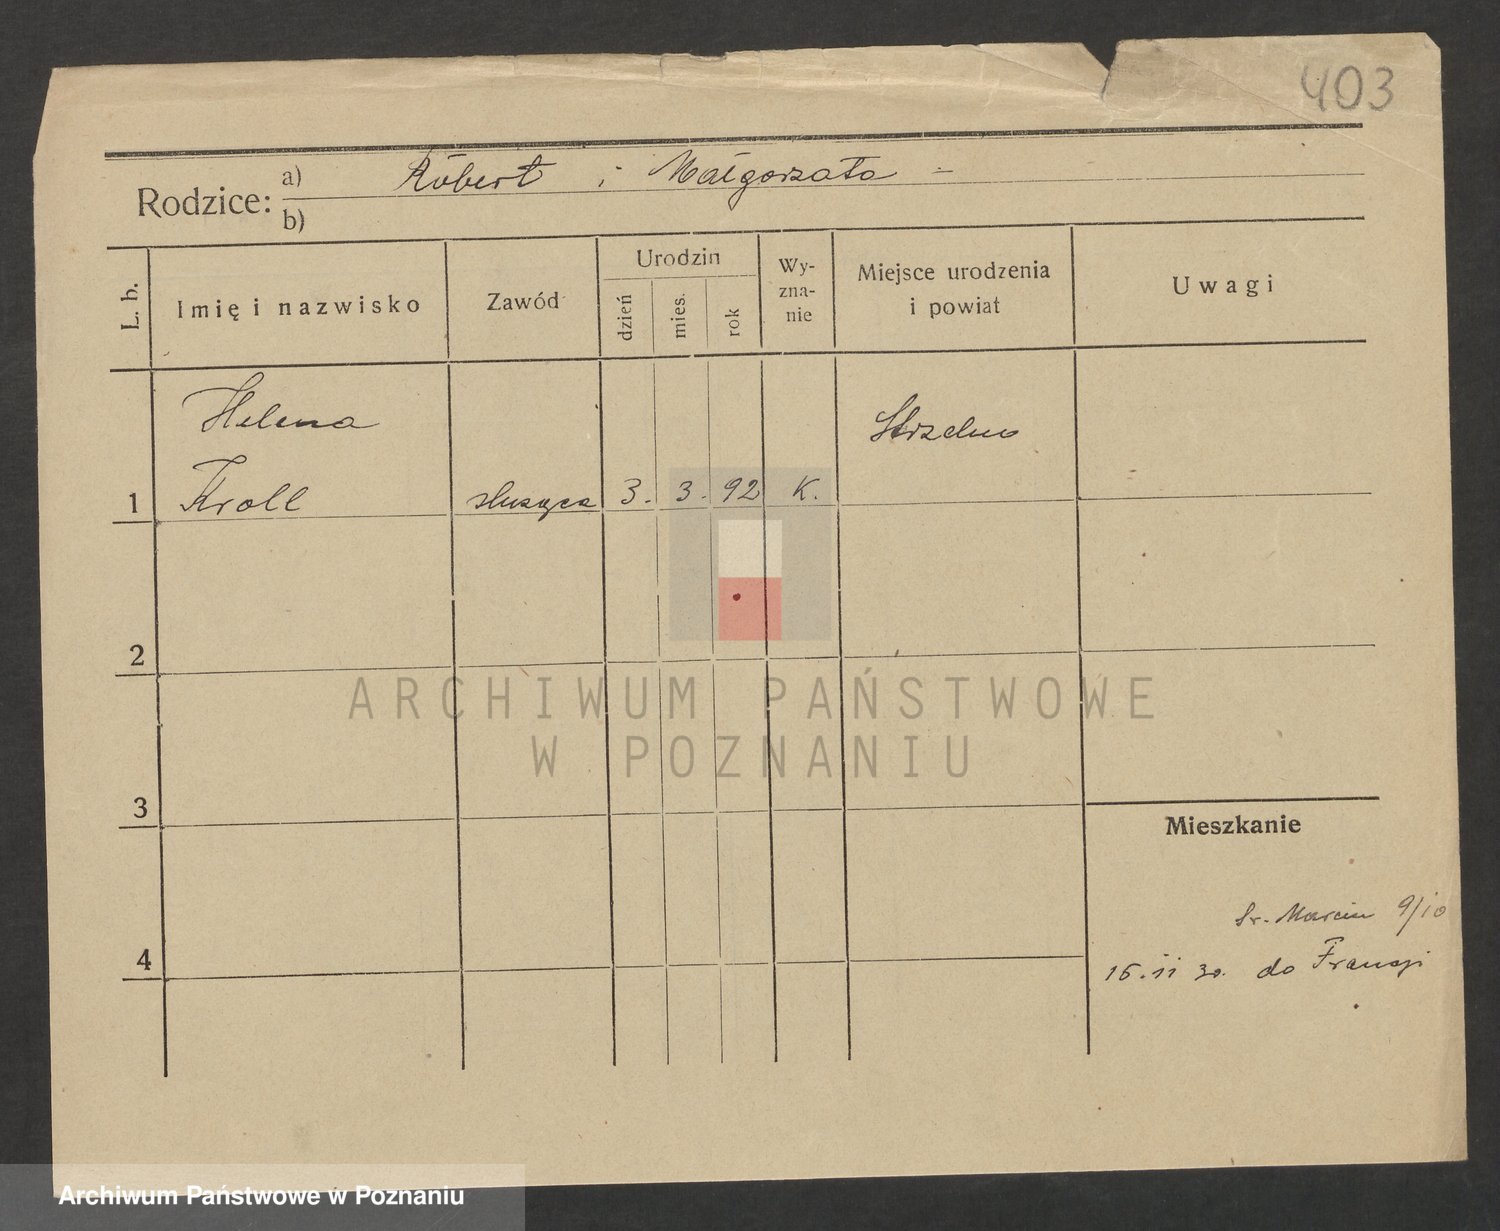 403
Rodzice: a) Robert i Małgorzata -
b)
L. b.
Imię i nazwisko
Zawód
Urodzin
dzień
mies.
rok
Wy-
zna-
nie
Miejsce urodzenia
i powiat
Uwagi
Helena
Strzelno
1 Kroll służąca 3. 3. 92 K.
2
ARCHIWUM PAŃSTWOWE
W POZNANIU
3
Mieszkanie
Św. Marcin 9/10
4
15. 11 30. do Francji
Archiwum Państwowe w Poznaniu